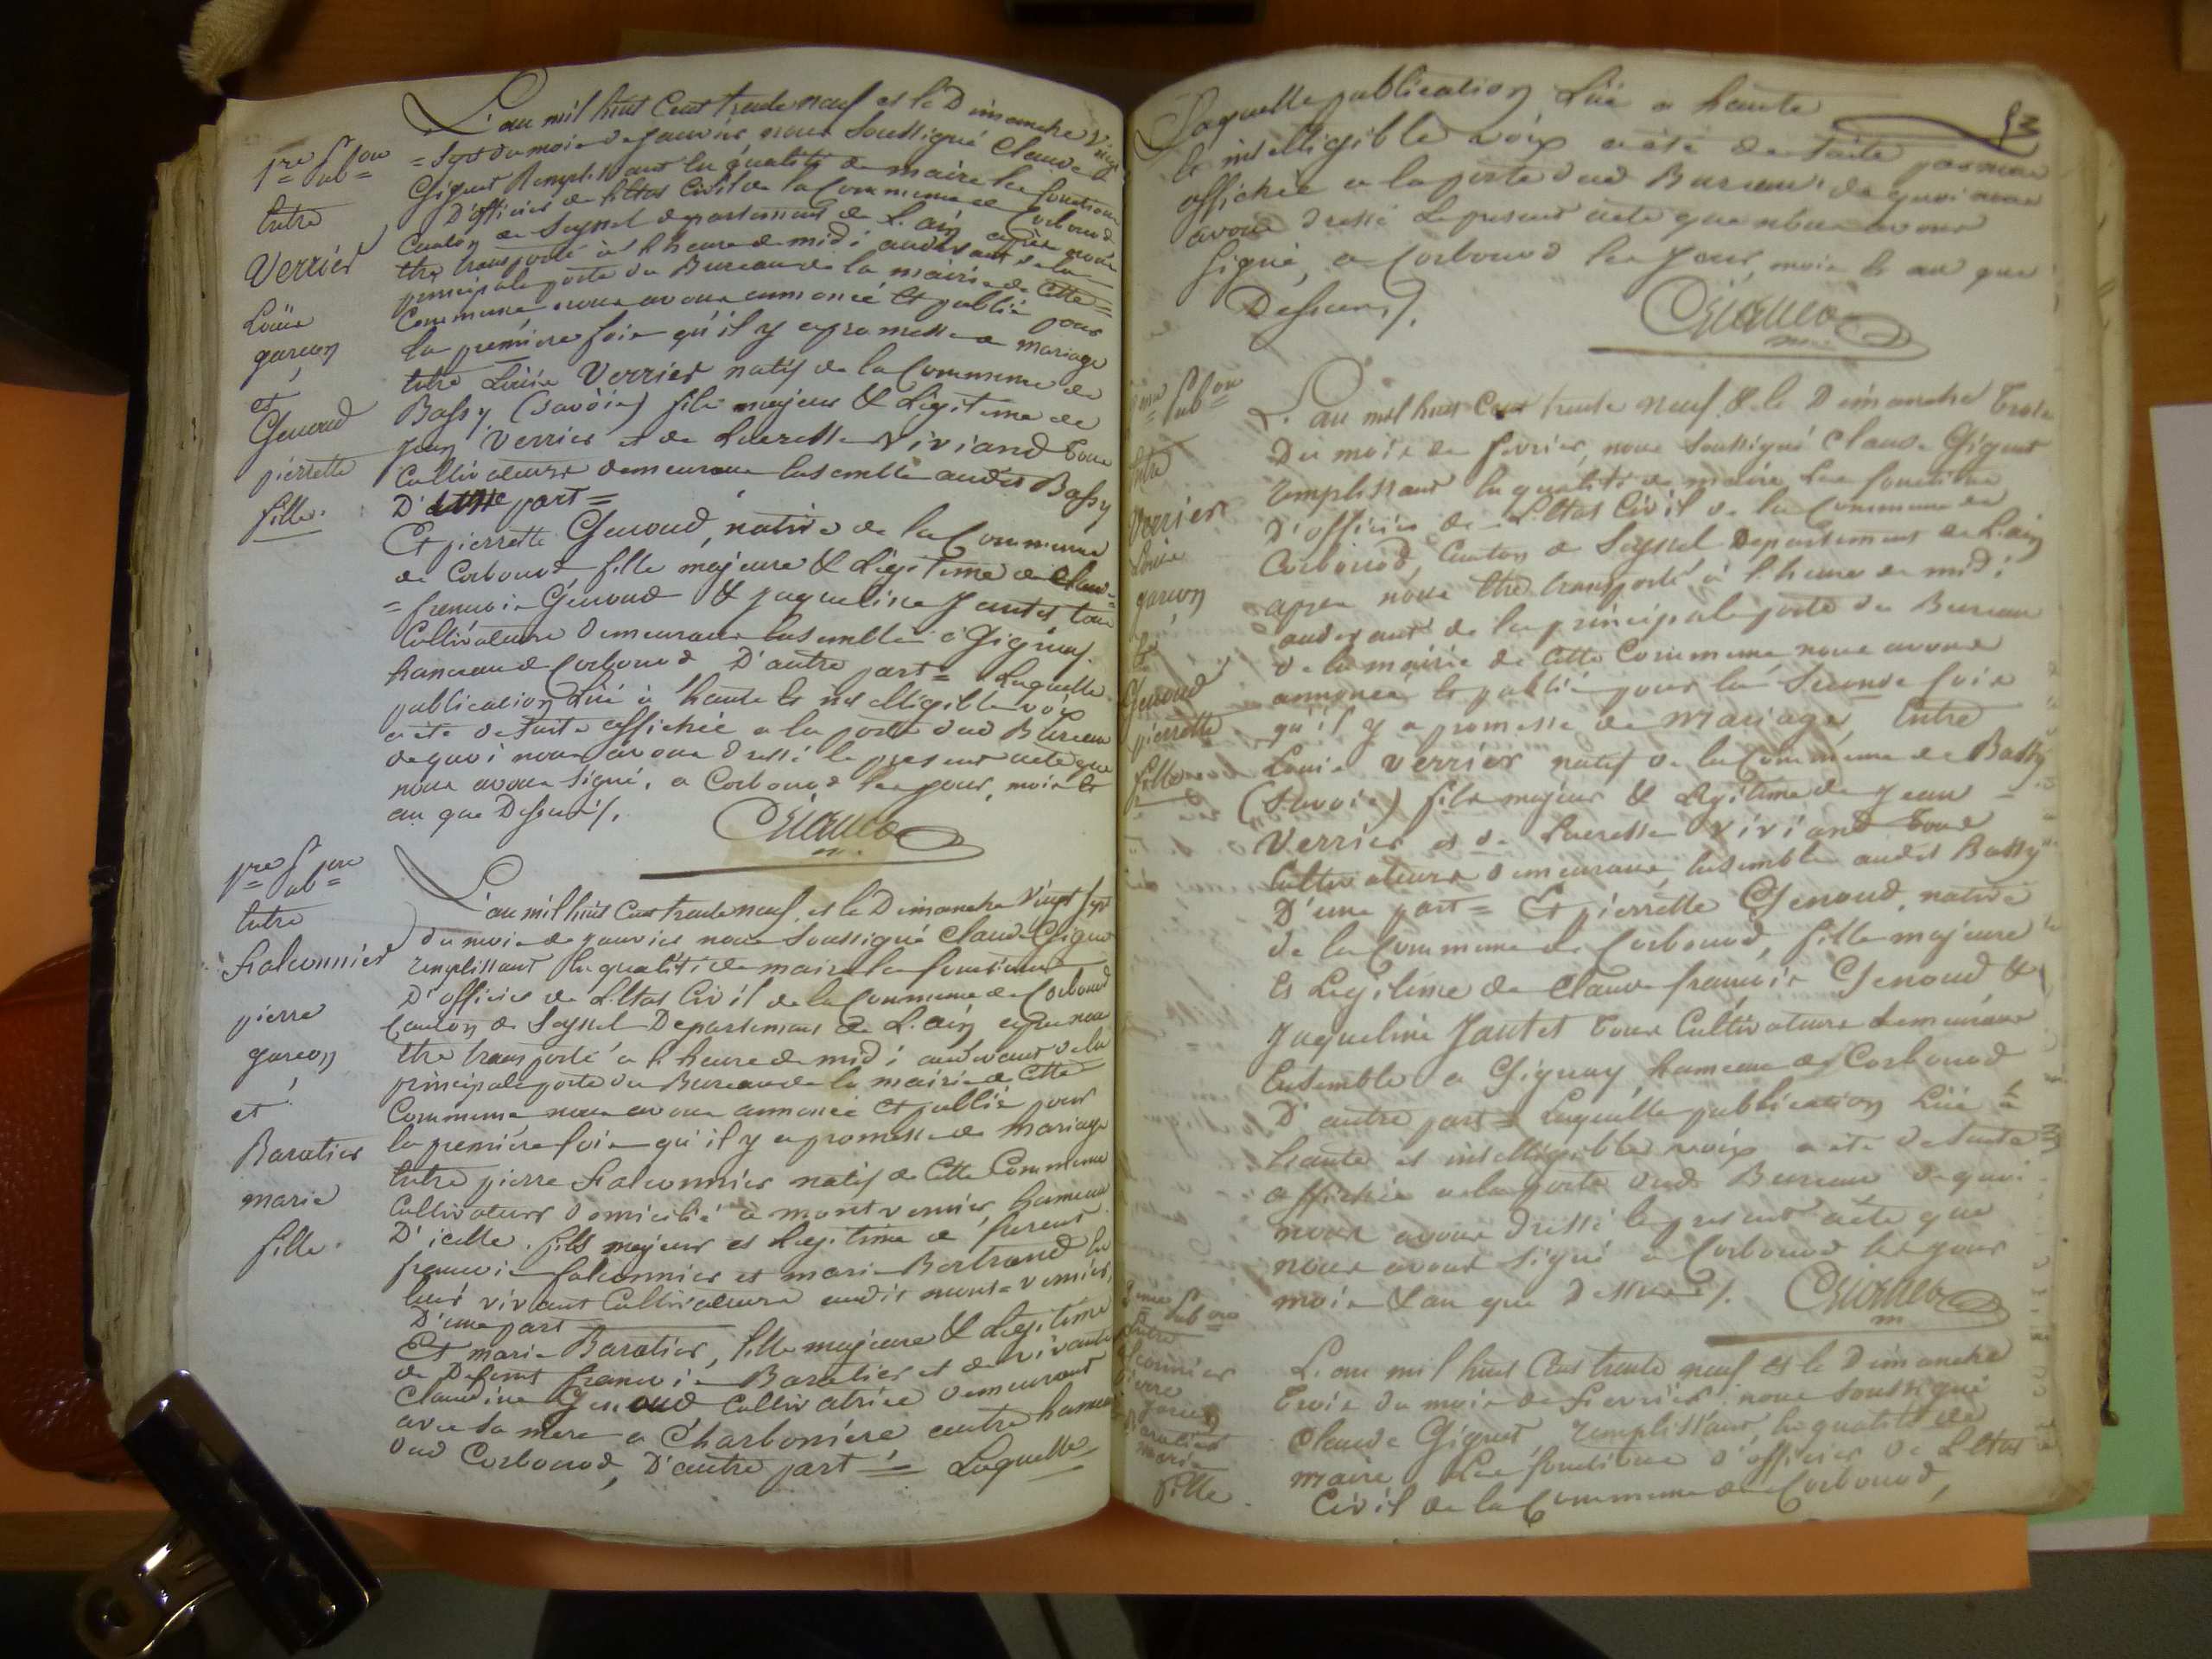 1re Pub on
Entre
Verrier
Loüis
garcon
et
Genoud
pierrette
fille.
L'an mil huit Cent trente neuf et le Dimanche vingt
= Sept du mois de janvier nous Soussigné Claude
Giguet Remplissant la qualité de maire les fonctions
D'officier de L'Etat Civil de la Commune de Corbonod
Canton de Seyssel département de L'ain après nous
Etre transporté à l'heure de midi audevant de la
principale porte du Bureau de la mairie de Cette =
Commune nous avons annoncé Et publié pour
la première fois qu'il y a promesse de mariage
Entre Loüis Verrier natif de la Commune de
Bassy (Savoie) fils majeur & Légitime de
jean Verrier et de Lucresse Viviand Tous
Cultivateurs demeurans Ensemble audit Bassy
D'une part =
Et pierrette Genoud, native de la Commune
de Corbonod, fille majeure & Légitime de Claude
= francois Genoud & jaqueline Jantet, tous
Cultivateurs Demeurans Ensemble à Gignay
hameau de Corbonod D'autre part = Laquelle
publication Lüe à haute Et intelligible voix
a été de suite affichée a la porte dud Bureau
de quoi nous avons dressé le present acte que
nous avons Signé, a Corbonod les jour, mois Et
an que Dessus /.
1re Pub on
Entre
Falconnier
pierre
garcon
et
Baratier
marie
fille.
L'an mil huit Cent trente neuf, et le Dimanche Vingt Sept
du mois de janvier nous Soussigné Claude Giguet
remplissant la qualité de maire les fonctions
D'officier de L'Etat Civil de la Commune de Corbonod
Canton de Seyssel Département de L'ain après nous
Etre transporté a l'heure de midi audevant de la
principale porte du Bureau de la mairie de Cette
Commune, nous avons annoncé Et publié pour
la première fois qu'il y a promesse de Mariage
Entre pierre Falconnier natif de Cette Commune
Cultivateur Domicilié a montvernier, hameau
D'icelle. fils majeur et Légitime de furent
francois falconnier et marie Bertrand
Eux vivant Cultivateurs audit mont=vernier,
D'une part
Et marie Baratier, fille majeure & Légitime
de Defunt francois Baratier et de vivante
Claudine Genoud Cultivatrice demeurant
avec Sa mère a Charbonière autre hameau
dud Corbonod, D'autre part = Laquelle
53
Laquelle publication Lüe a haute
Et intelligible voix a été de Suite par nous
affichée a la porte dud Bureau de quoi nous
avons dressé le present acte que nous avons
Signé, a Corbonod les Jour, mois Et an que
Dessus /.
2me Pub on
Entre
Verrier
Loüis
garcon
Et
Genoud
pierrette
fille
L'an mil huit Cent trente neuf & le Dimanche Trois
Du mois de fevrier, nous Soussigné Claude Giguet
remplissant la qualité de maire les fonctions
D'officier de L'Etat Civil de la Commune de
Corbonod, Canton de Seyssel Département de L'ain
apres nous Etre transporté à l'heure de midi
audevant de la principale porte du Bureau
de la mairie de Cette Commune nous avons
annoncé Et publié pour la Seconde fois
qu'il y a promesse de Mariage, Entre
Louis verrier natif de la Commune de Bassy
(Savoie) fils majeur & Légitime de jean =
Verrier et de Lucresse Viviand Tous
Cultivateurs demeurans, Ensemble audit Bassy
D'une part = Et pierrette Genoud, native
de la Commune de Corbonod, fille majeure
Et Légitime de Claude francois Genoud &
Jaqueline Jantet Tous Cultivateurs demeurans
Ensemble a Gignay hameau de Corbonod
D'autre part = Laquelle publication Lüe à
haute et intelligible voix a été de suite
affichée a la porte dud Bureau de quoi
nous avons dressé le present acte que
nous avons Signé a Corbonod les jour
mois & an que Dessus /.
2me Pub on
Entre
Falconnier
pierre
garcon
Baratier
marie
fille.
L'an mil huit Cent trente neuf et le Dimanche
Trois du mois de Fevrier nous Soussigné
Claude Giguet remplissant, la qualité de
maire Les fonctions d'officier de L'Etat
Civil de la Commune de Corbonod,